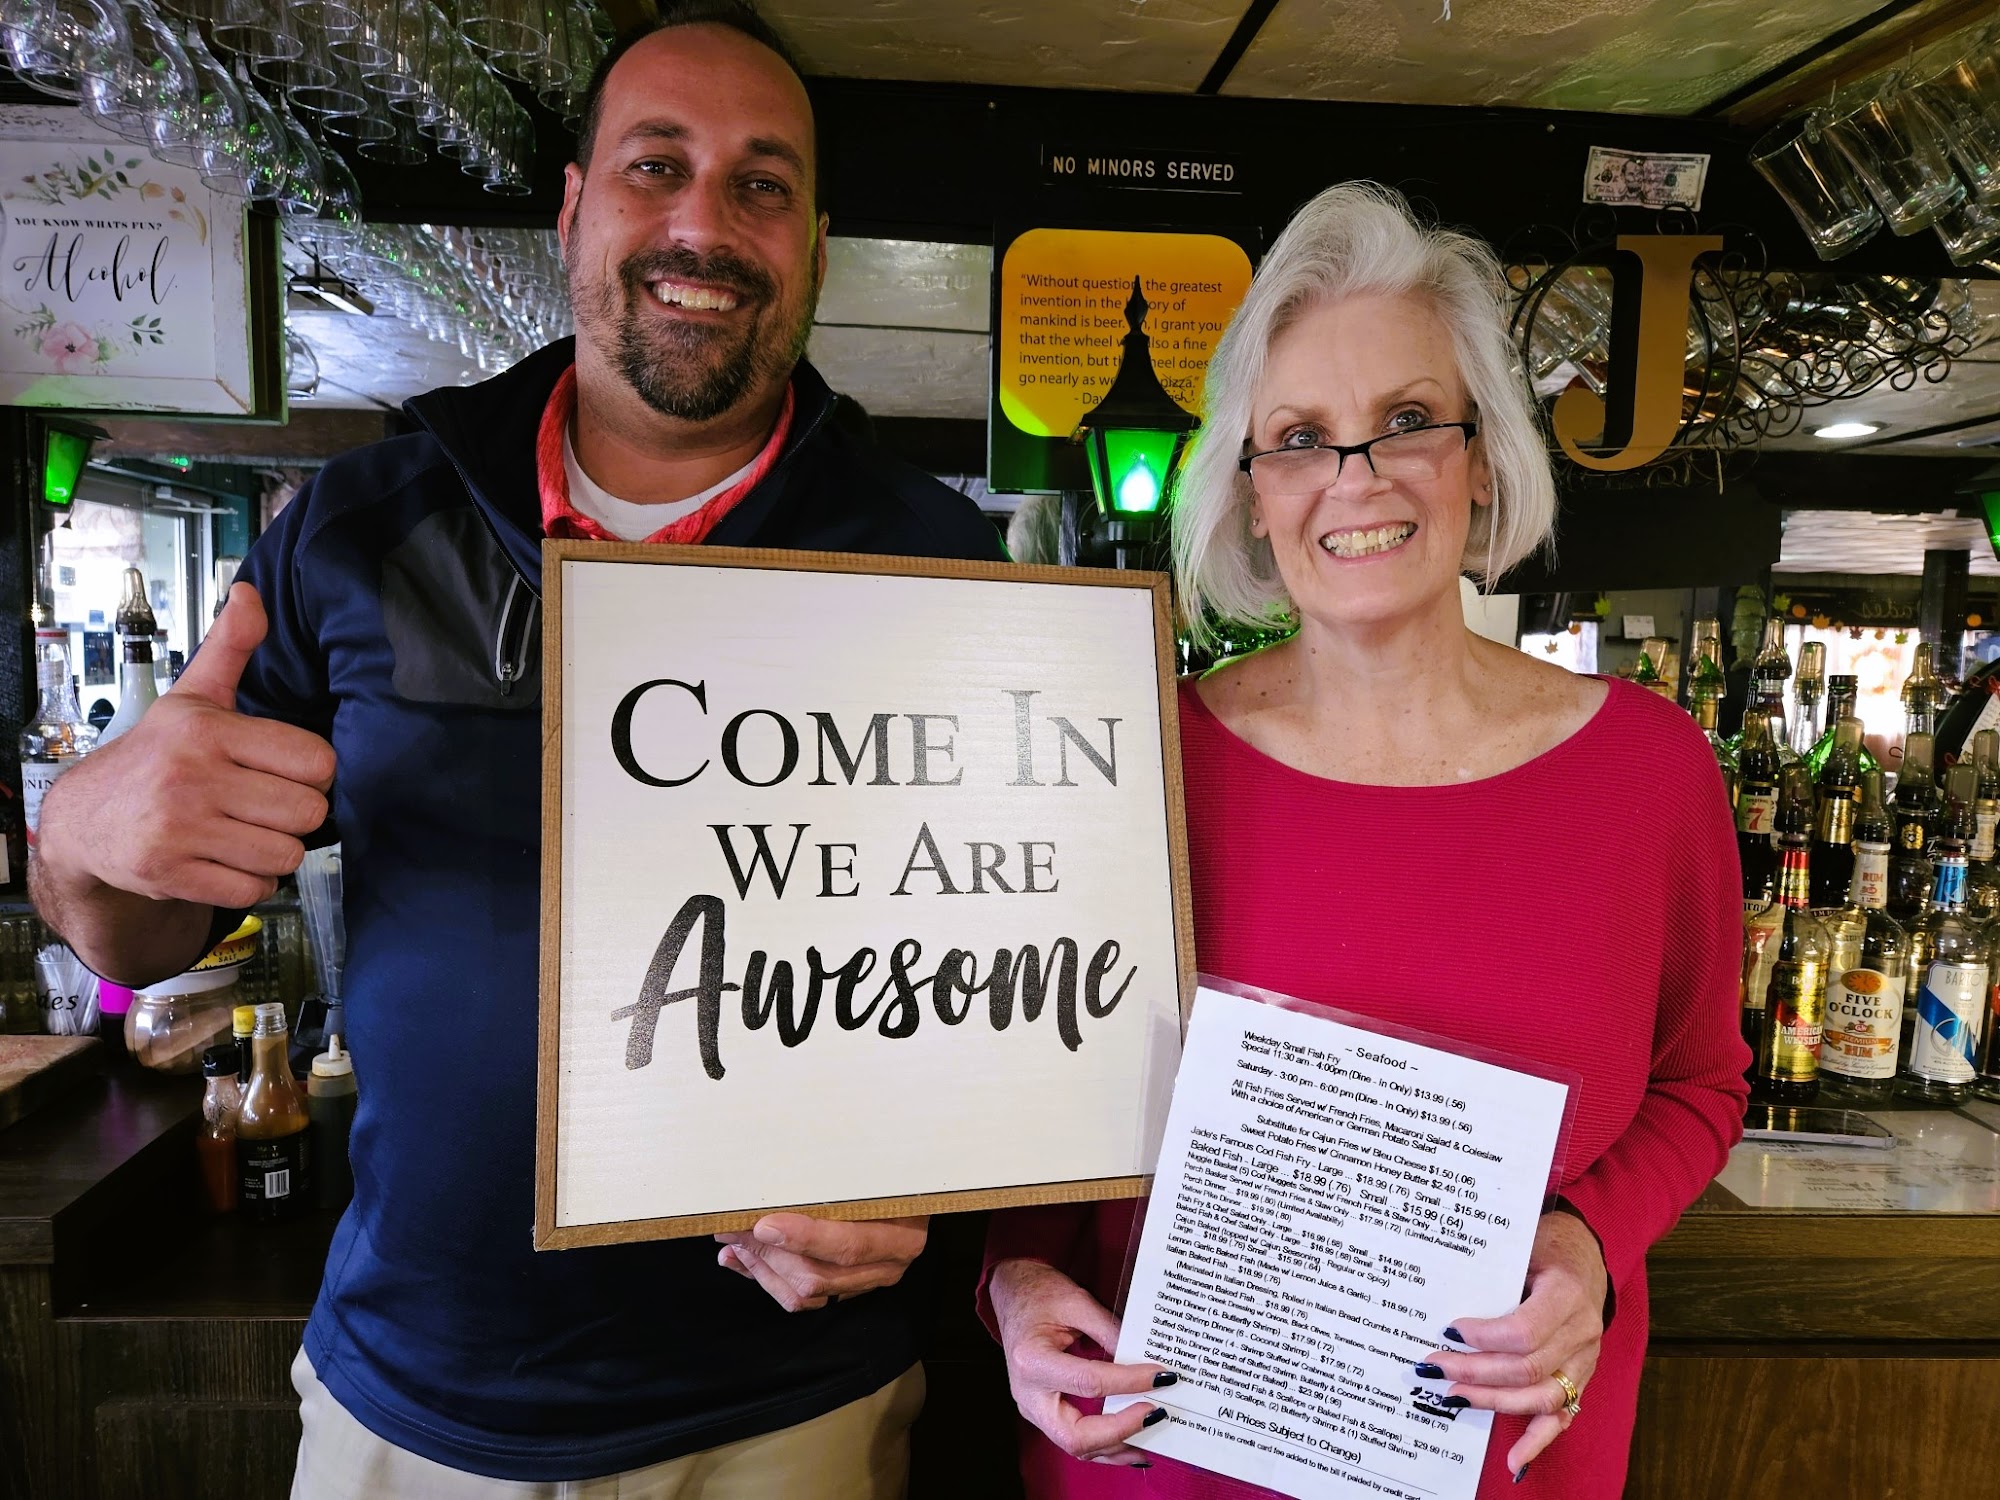 YOU KNOW WHATS FUN?
Alcohol.
NO MINORS SERVED
"Without question, the greatest
invention in the history of
mankind is beer. Oh, I grant you
that the wheel was also a fine
invention, but the wheel does
go nearly as well pizza."
- Dav
J
COME IN
WE ARE
Awesome
SALT
des
7
RUM
AMERICAN
WHISKEY
FIVE
O'CLOCK
PREMIUM
BARTO
~ Seafood ~
Weekday Small Fish Fry
Special 11:30 am - 4:00pm (Dine - In Only) $13.99 (.56)
Saturday - 3:00 pm - 6:00 pm (Dine - In Only) $13.99 (.56)
All Fish Fries Served w/ French Fries, Macaroni Salad & Coleslaw
With a choice of American or German Potato Salad
Substitute for Cajun Fries w/ Bleu Cheese $1.50 (.06)
Sweet Potato Fries w/ Cinnamon Honey Butter $2.49 (.10)
Jade's Famous Cod Fish Fry - Large ... $18.99 (.76) Small ... $15.99 (.64)
Baked Fish - Large ... $18.99 (.76) Small ... $15.99 (.64)
Nuggie Basket (5) Cod Nuggets Served w/ French Fries & Slaw Only ... $15.99 (.64)
Perch Basket Served w/ French Fries & Slaw Only ... $17.99 (.72) (Limited Availability)
Perch Dinner ... $19.99 (.80) (Limited Availability)
Yellow Pike Dinner ... $19.99 (.80)
Fish Fry & Chef Salad Only - Large ... $16.99 (.68) Small ... $14.99 (.60)
Baked Fish & Chef Salad Only - Large ... $16.99 (.68) Small ... $14.99 (.60)
Cajun Baked (topped w/ Cajun Seasoning - Regular or Spicy)
Large ... $18.99 (.76) Small ... $15.99 (.64)
Lemon Garlic Baked Fish (Made w/ Lemon Juice & Garlic) ... $18.99 (.76)
Italian Baked Fish ... $18.99 (.76)
(Marinated in Italian Dressing, Rolled in Italian Bread Crumbs & Parmesan
Mediterranean Baked Fish ... $18.99 (.76)
(Marinated in Greek Dressing w/ Onions, Black Olives, Tomatoes, Green Peppers
Shrimp Dinner ( 6 - Butterfly Shrimp) ... $17.99 (.72)
Coconut Shrimp Dinner (6 - Coconut Shrimp) ... $17.99 (.72)
Stuffed Shrimp Dinner ( 4 - Shrimp Stuffed w/ Crabmeat, Shrimp & Cheese) ...
Shrimp Trio Dinner (2 each of Stuffed Shrimp, Butterfly & Coconut Shrimp) ... $18.99 (.76)
Scallop Dinner ( Beer Battered or Baked) ... $23.99 (.96)
Seafood Platter (Beer Battered Fish & Scallops or Baked Fish & Scallops) ... $29.99 (1.20)
Piece of Fish, (3) Scallops, (2) Butterfly Shrimp & (1) Stuffed Shrimp)
(All Prices Subject to Change)
price in the ( ) is the credit card fee added to the bill if paid by credit card